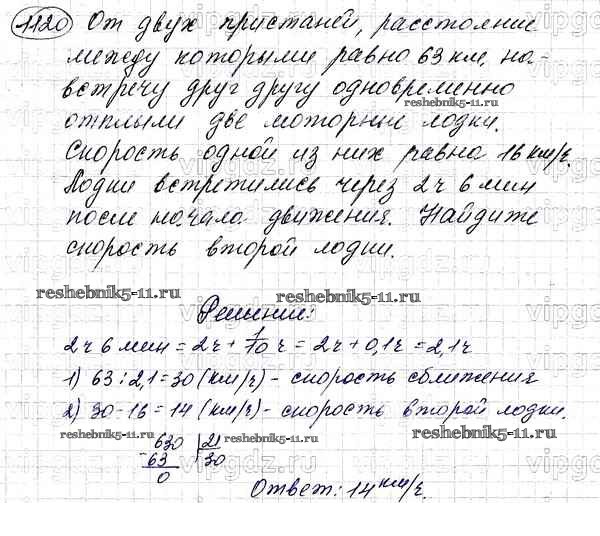 1120 От двух пристаней, расстояние
между которыми равно 63 км, на-
встречу друг другу одновременно
reshebnik5-11.ru
отплыли две моторные лодки.
Скорость одной из них равна 16 км/ч.
Лодки встретились через 2ч 6 мин
после начала движения. Найдите
скорость второй лодки.
reshebnik5-11.ru reshebnik5-11.ru
Решение:
2ч 6 мин = 2ч + 1/10 ч = 2ч + 0,1ч = 2,1ч
1) 63 : 2,1 = 30 (км/ч) - скорость сближения
2) 30 - 16 = 14 (км/ч) - скорость второй лодки.
reshebnik5-11.ru reshebnik5-11.ru reshebnik5-11.ru
630 | 21
- 63 30
0
Ответ: 14 км/ч.